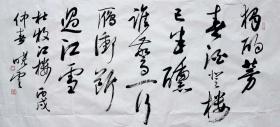 獨酌芳
春酒登樓
已半醺
誰驚一行
雁衝斷
過江雲
杜牧江樓 丙戌
仲春